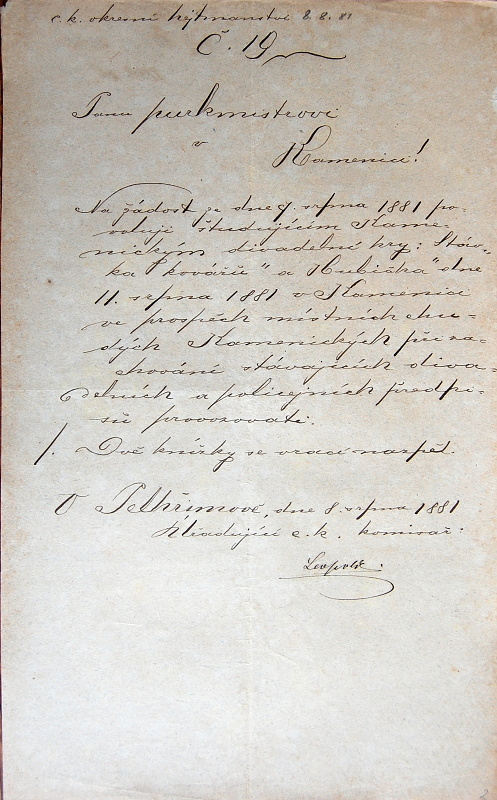 c. k. okresní hejtmanství 8. 8. 81
Č. 19
Panu purkmistrovi
v
Kamenici!
Na žádost ze dne 7. srpna 1881 po-
voluji študujícím Kame-
nickým divadelní hry: „Stáv-
ka kovářů" a „Hubička" dne
11. srpna 1881 v Kamenici
ve prospěch místních chu-
dých Kamenických při za-
chování stávajících diva-
delních a policejních předpi-
sů provozovati.
/. Dvě knížky se vrací nazpět.
V Pelhřimově, dne 8. srpna 1881
Úřadující c. k. komisař:
Leopold.
2